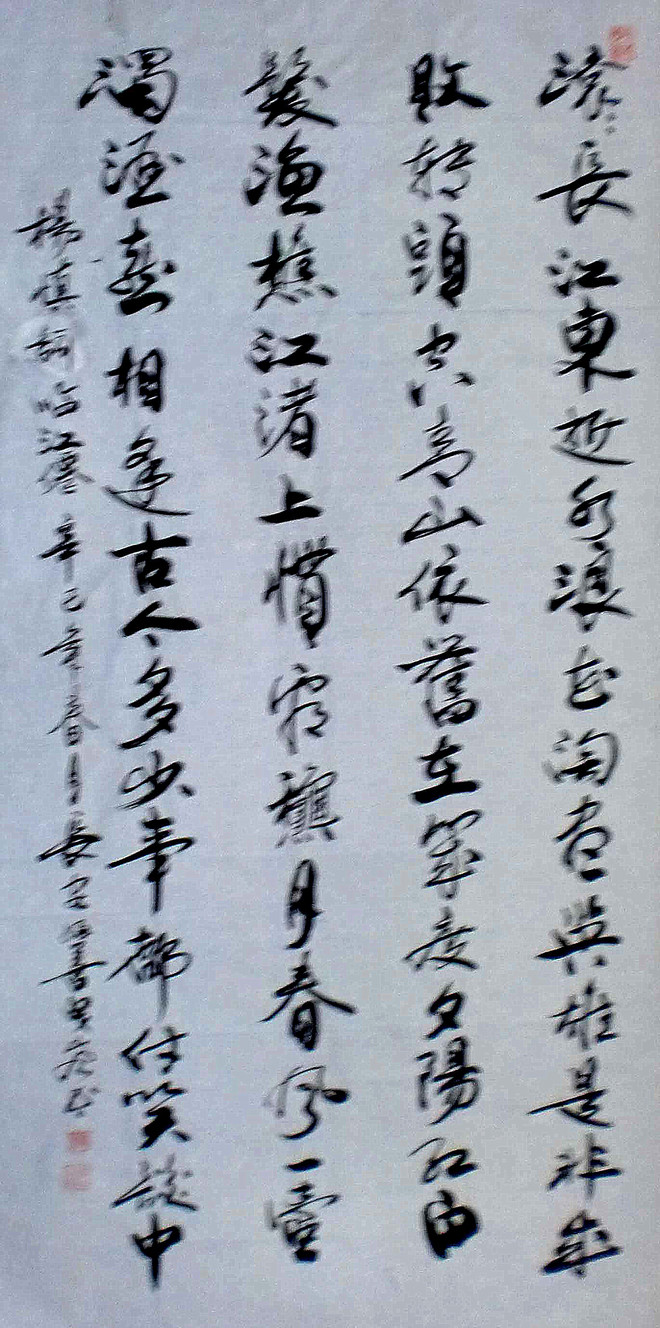 滚々長江東逝水浪花淘盡英雄是非成
敗转頭空青山依舊在幾度夕陽红白
髮漁樵江渚上慣看龝月春風一壺
濁酒喜相逢古今多少事都付笑談中
楊慎詞临江僊 辛巳年春月長安 書